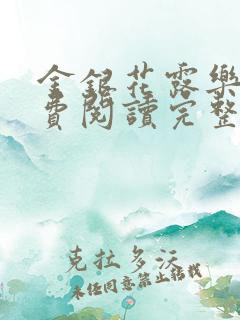 金銀花露樂
費閱讀完整
克拉多沃
未經同意禁止轉載